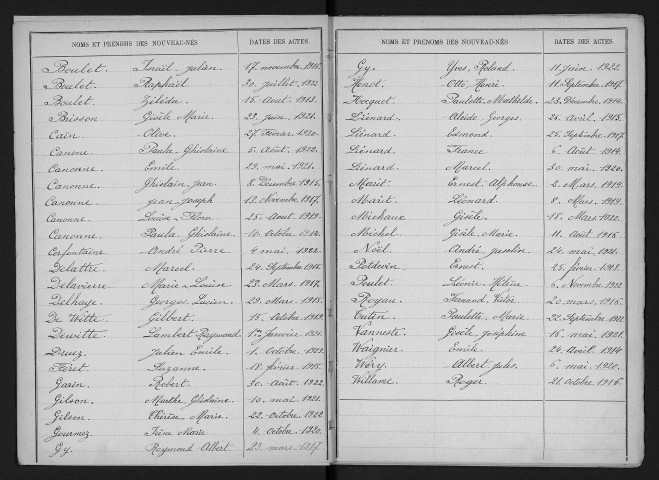 NOMS ET PRÉNOMS DES NOUVEAU-NÉS DATES DES ACTES.
Boulet. Israël Julien 17 novembre 1916.
Boulet. Raphaël 30 juillet 1922
Boulet Zélida. 15 Aout 1918.
Brisson Gisèle Marie 23 Juin 1921.
Caën Olive. 27 Févrer 1920.
Canone Paula Ghislaine 5 Août 1922.
Canonne Emile 29 mai 1921.
Canonne. Ghislain Jean 8 Décembre 1915.
Canonne Jean Joseph 12 Novembre 1917.
Canonne. Louise Flore 25 Aout 1919.
Canonne. Paula Ghislaine. 10 Octobre 1914.
Cerfontaine André Pierre 4 mai 1922.
Delattre. Marcel. 24 Septembre 1915.
Delavierre Marie Louise 23 Mars 1917.
Delhaye Georges Lucien. 29 Mars 1915.
De Witte Gilbert. 15 Octobre 1919
Dewitte Lambert Raymond 1er Janvier 1921.
Diuez Julien Emile. 1 Octobre 1923.
Féret Suzanne. 18 février 1915.
Garin Robert 30 Août 1922.
Gilson. Marthe Ghislaine. 10 mai 1921.
Gilson Thérèse Marie. 22 Octobre 1922
Gourmez. Irène Marie 4 Octobre 1920.
Gy Raymond Albert 23 mars 1917
NOMS ET PRÉNOMS DES NOUVEAU-NÉS. DATES DES ACTES.
Gy. Yves Roland. 11 Juin 1922.
Henot Otto Henri. 11 Septembre 1917.
Hocquet. Paulette Mathilde. 23 Décembre 1914.
Liénard Alcide Georges. 26 Avril 1915.
Liénard. Edmond. 25 Septembre 1917.
Liénard. France 6 Aout 1914.
Liénard Marcel 30 mai 1920.
Marit Ernest Alphonse 2 Mars 1919.
Marit. Léonard 8 Mars 1919.
Michaux Gisèle. 18 Mars 1922.
Michel Gisèle Marie. 11 Août 1916
Noël. André Justin 24 mai 1921.
Potdevin. Ernest. 25 février 1918.
Poulet Léonie Hélène 6 Novembre 1922
Royau Fernand Victor 20 mars 1916.
Tutin. Paulette Marie. 22 Septembre 1922.
Vanneste Gisèle Joséphine 15 mai 1921.
Waignier Emile 24 Avril 1914
Wéry Albert Jules. 6 mai 1920.
Willame. Roger. 21 Octobre 1916.